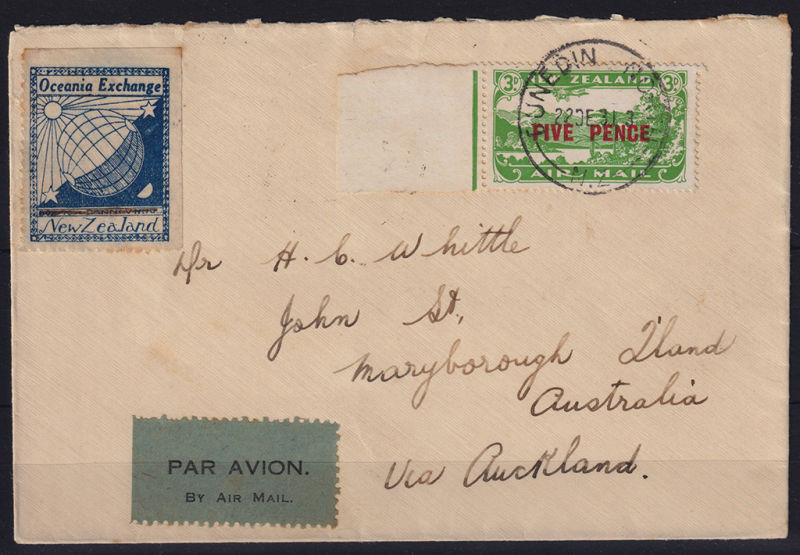 Oceania Exchange
New Zealand
3D NEW ZEALAND 3D
FIVE PENCE
AIR MAIL
DUNEDIN
22DE31
N.Z
Mr H. C. Whittle
John St,
Maryborough Q'land
Australia
Via Auckland.
PAR AVION.
BY AIR MAIL.